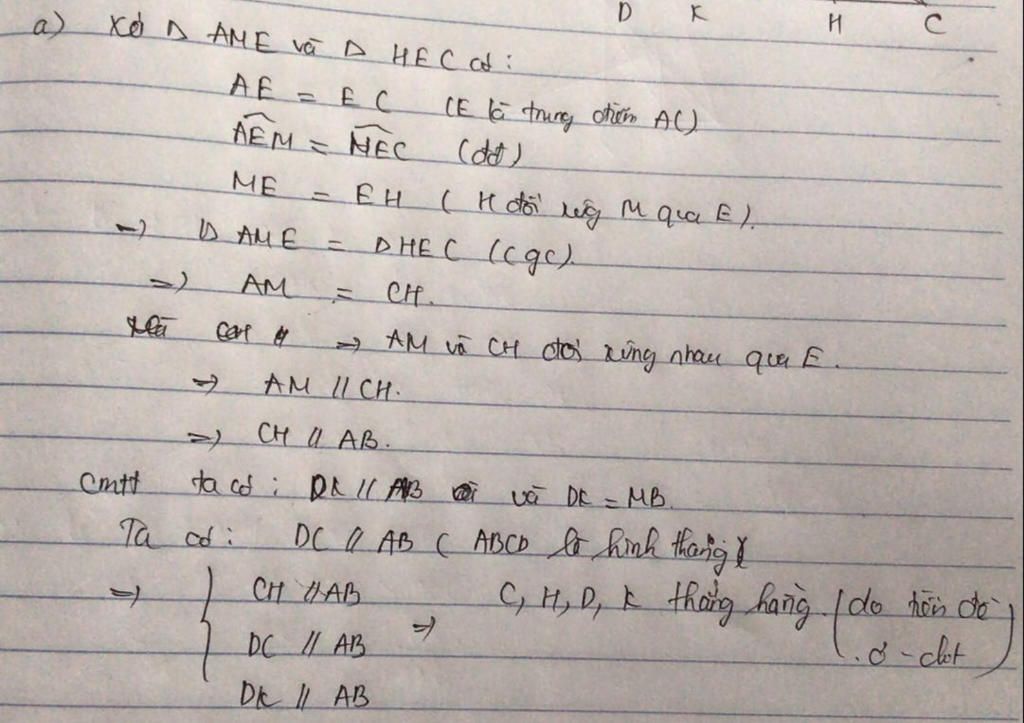 D K H C
a) Xét Δ AME và Δ HEC có:
AE = EC (E là trung điểm AC)
AEM = HEC (đđ)
ME = EH (H đối xứng M qua E).
=> Δ AME = Δ HEC (cgc).
=> AM = CH.
=> AM và CH đối xứng nhau qua E.
=> AM // CH.
=> CH // AB.
Cmtt ta có: DK // AB và DK = MB.
Ta có: DC // AB ( ABCD là hình thang)
=> { CH // AB => C, H, D, K thẳng hàng. (do tiên đề
DC // AB Ơ-clit)
DK // AB